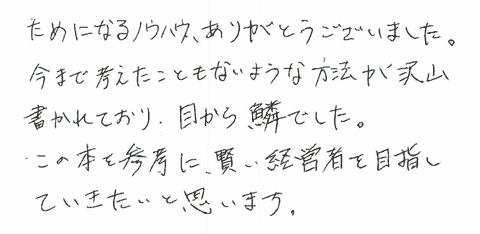 ためになるノウハウ、ありがとうございました。
今まで考えたこともないような方法が沢山
書かれており、目から鱗でした。
この本を参考に、賢い経営者を目指し
ていきたいと思います。